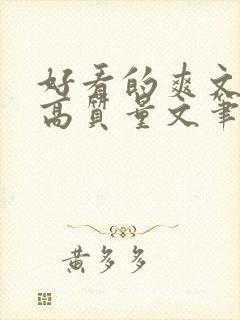 好看的爽文
高质量文笔
黄多多